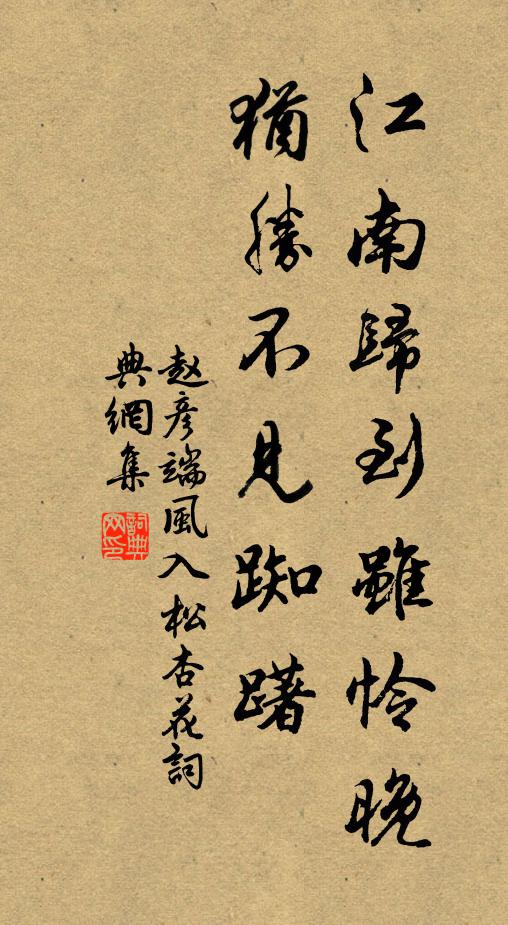 江南歸到雖怜晚
猶勝不見踟躇
赵彥端風入松杏花詞
典網集
詞典網印